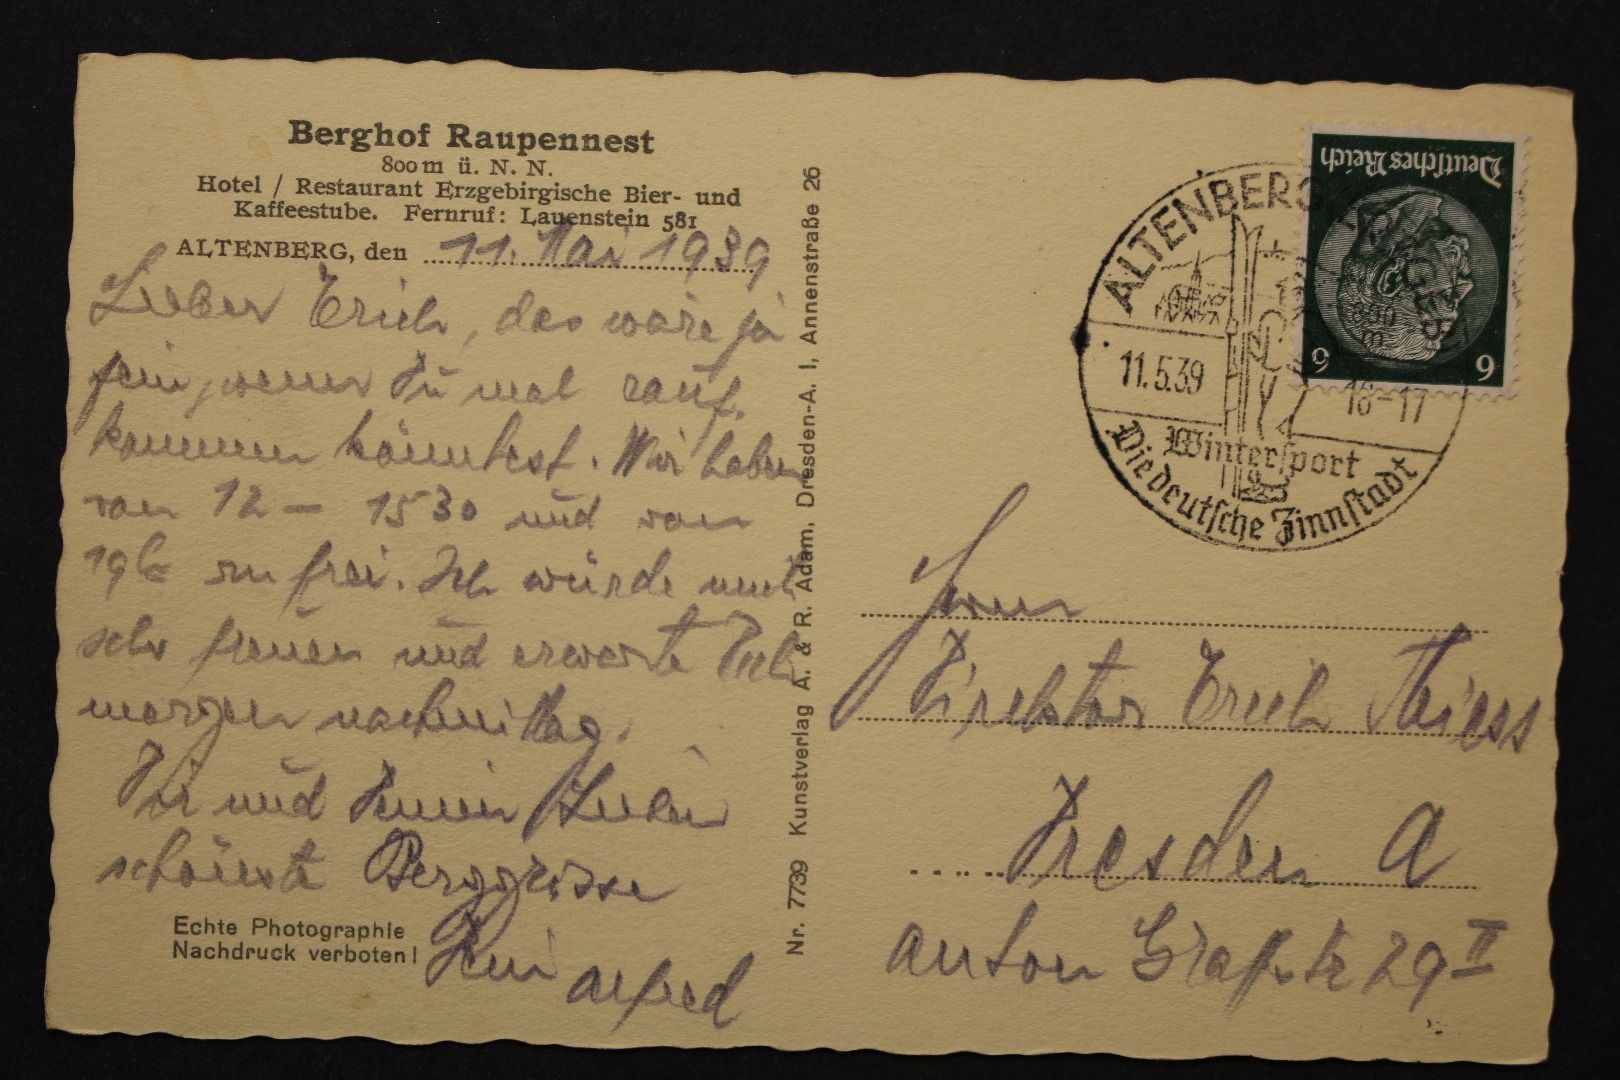 Berghof Raupennest
800 m ü. N. N.
Hotel / Restaurant Erzgebirgische Bier- und
Kaffeestube. Fernruf: Lauenstein 581
ALTENBERG, den 11. Mai 1939
Lieber Erich, das wäre ja
fein, wenn Du mal rauf-
kommen könntest. Wir haben
von 12 – 15 30 und von
19 h an frei. Ich würde mich
sehr freuen und erwarte Dich
morgen nachmittag.
Dir und Deinen Lieben
schönste Berggrüsse
Dein Alfred
Echte Photographie
Nachdruck verboten!
Nr. 7739 Kunstverlag A. & R. Adam, Dresden-A. 1, Annenstraße 26
Deutsches Reich
6 6
ALTENBERG
800
m
11.5.39
16-17
Wintersport
Die deutsche Zinnstadt
Herrn
Direktor Erich Thiess
Dresden A
Anton Grafstr 29 II